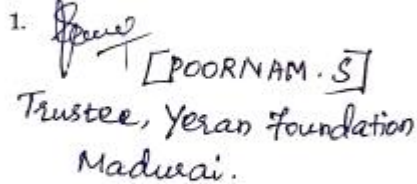 1.
[POORNAM. S]
Trustee, Yeran Foundation
Madurai.